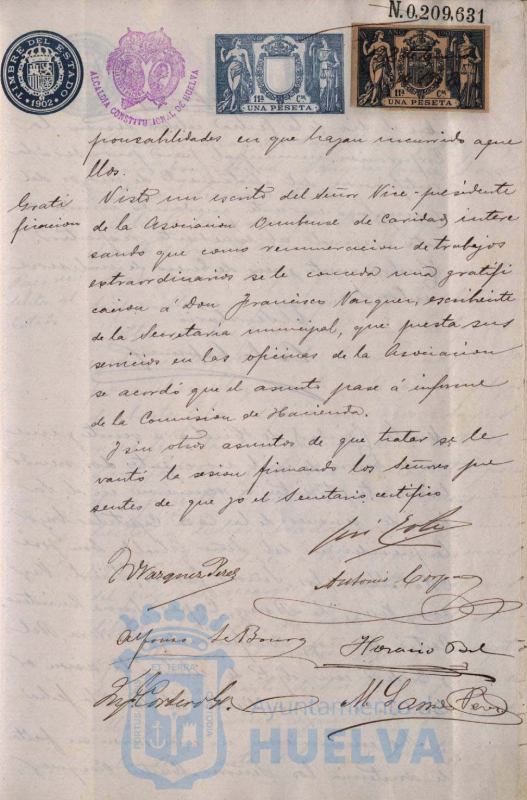 N.0.209,631
TIMBRE DEL ESTADO
1902
ALCALDIA CONSTITUCIONAL DE HUELVA
11ª Cª
UNA PESETA
11ª Cª
UNA PESETA
ponsabilidades en que hayan incurrido aque
llos.
Grati
ficacion
Visto un escrito del Señor Vice-presidente
de la Asociacion Onubense de Caridad, intere
sando que como remuneracion de trabajos
extraordinarios se le conceda una gratifi
cacion á Don Francisco Vazquez, escribiente
de la Secretaría municipal, que presta sus
servicios en las oficinas de la Asociacion
se acordó que el asunto pase á informe
de la Comision de Hacienda.
Y sin otros asuntos de que tratar se le
vantó la sesion firmando los Señores pre
sentes de que yo el Secretario certifico
Vazquez Perez
Antonio
Alfonso Le Bourg
Horacio Bel
Cordero
M. Garcia Perez
PORTUS
ET TERRAE
CUSTODIA
Ayuntamiento de
HUELVA